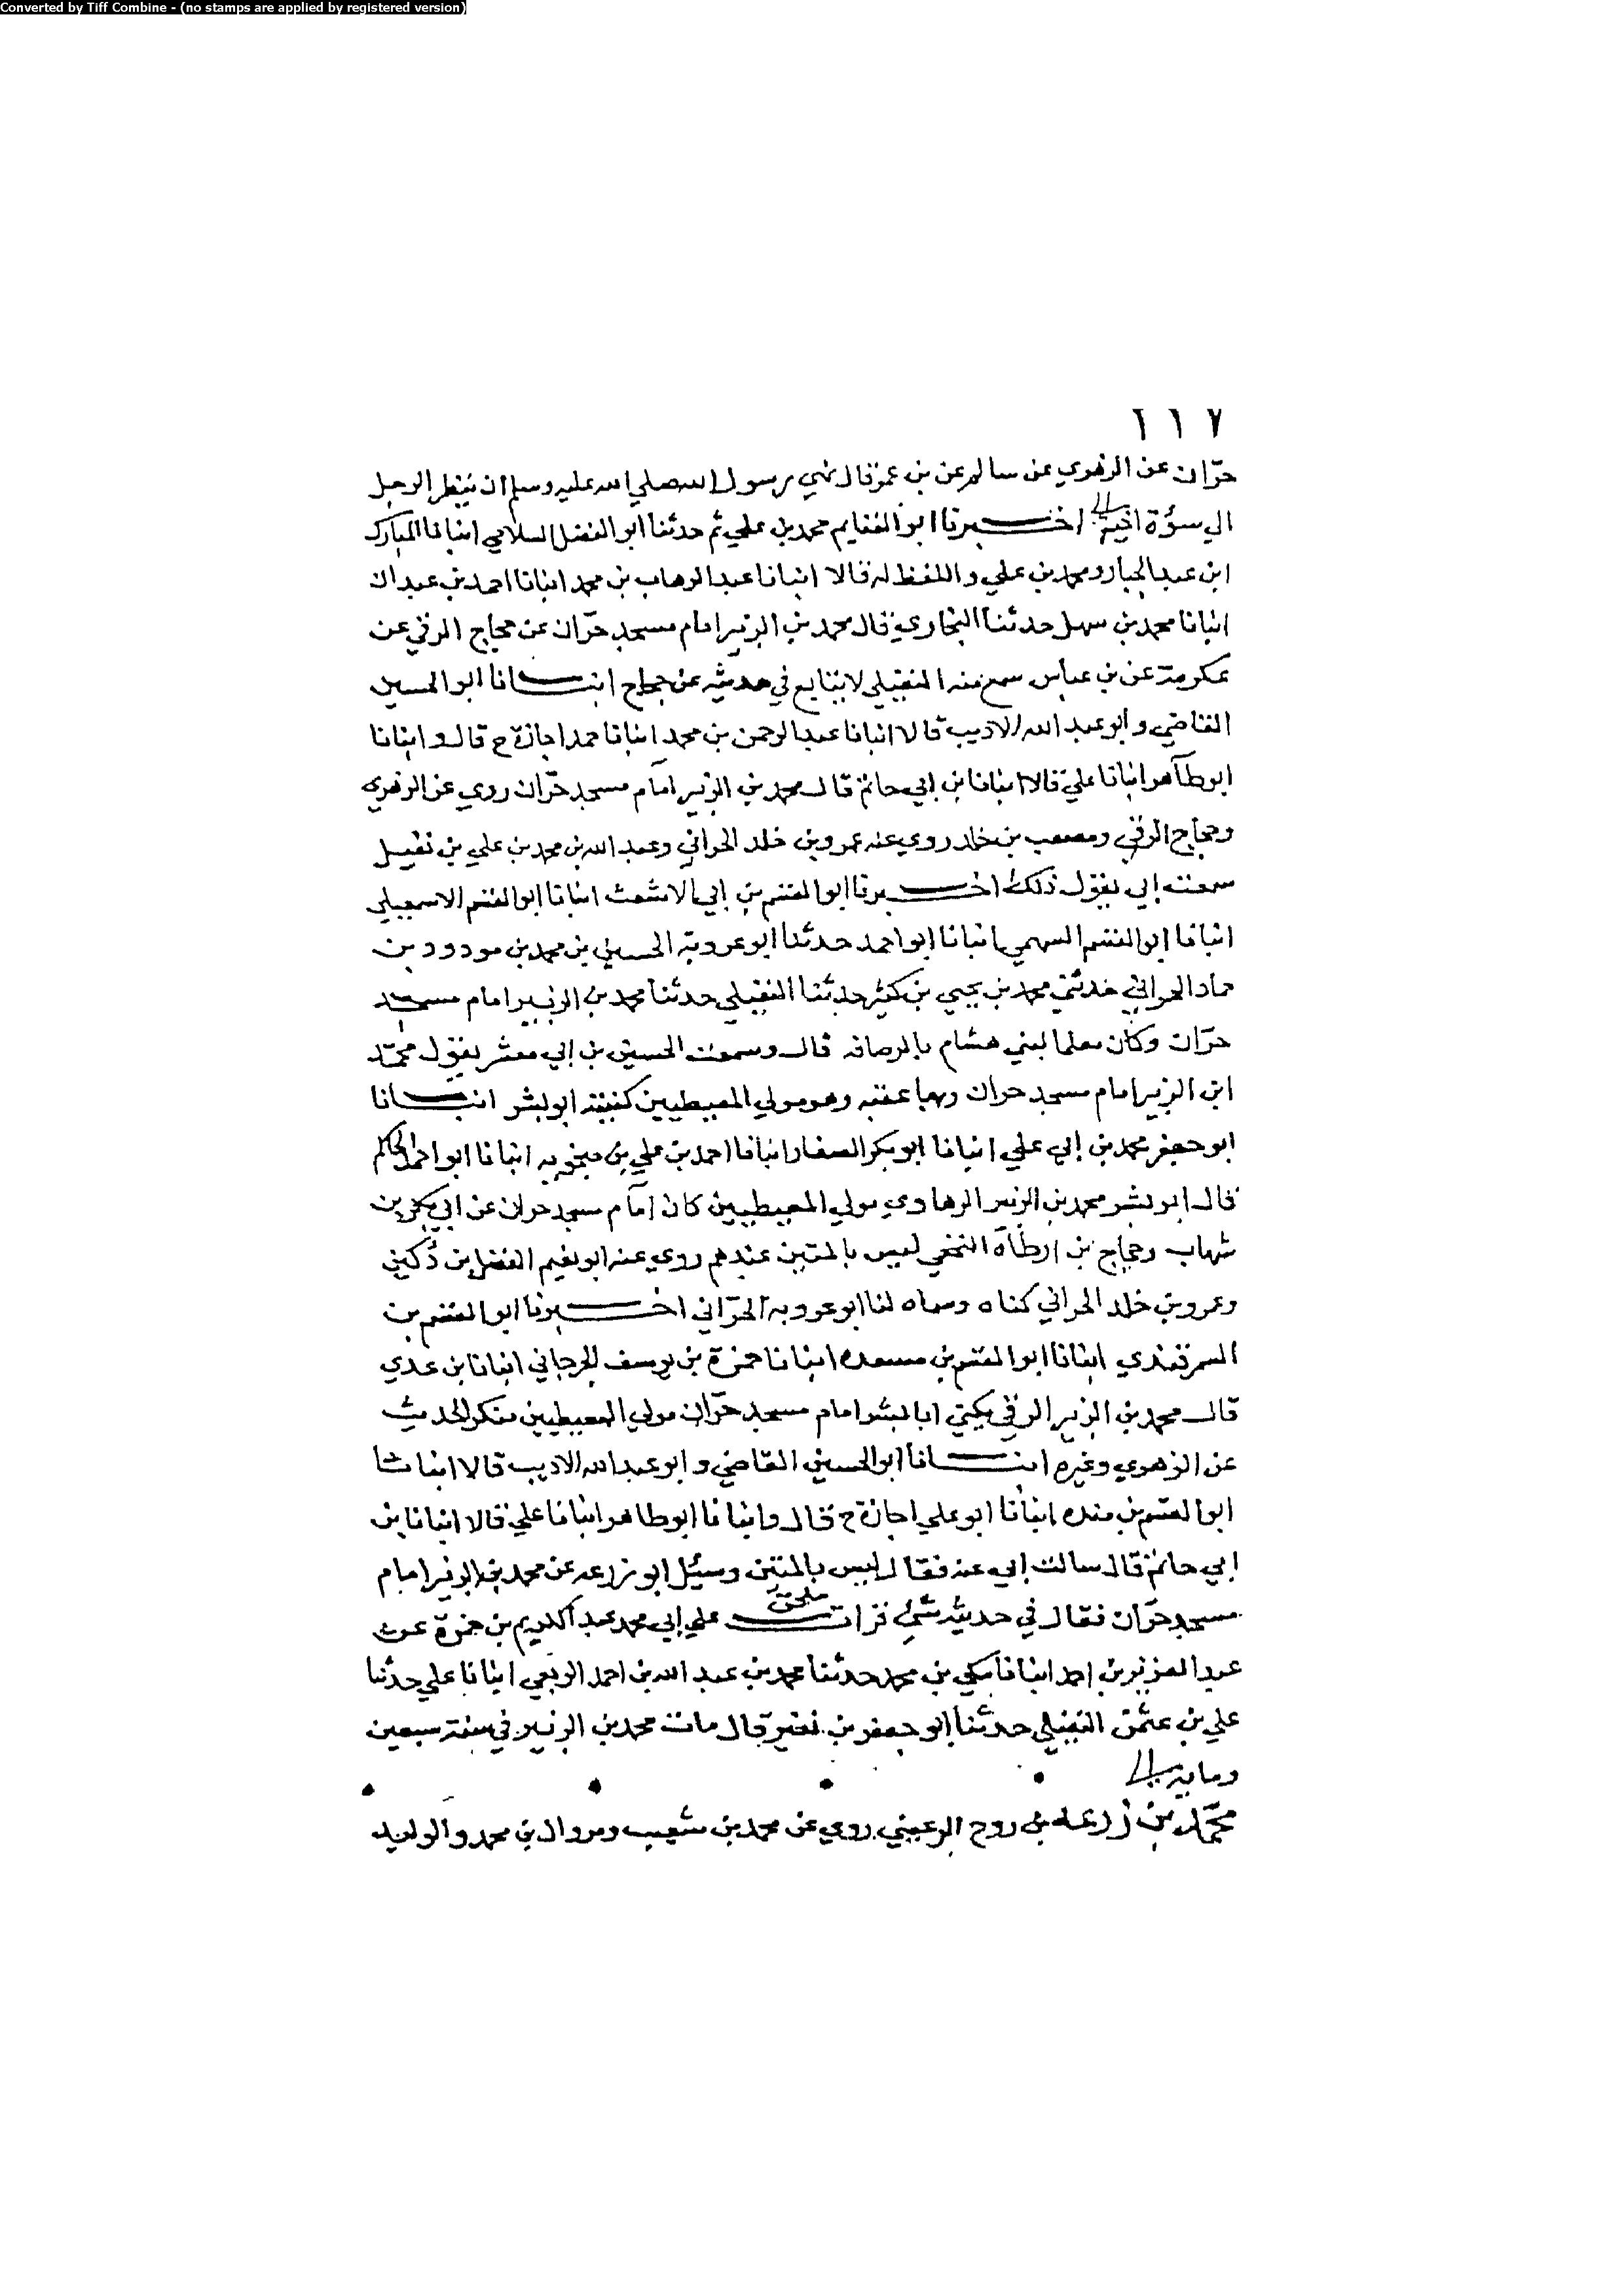 Converted by Tiff Combine - (no stamps are applied by registered version)
٦١٧
حرّان عن الزهري عن سالم عن بن عمر قال نهي رسول الله صلي الله عليه وسلم ان ينظر الرجل
الي سؤة اخيه اخبرنا ابو الغنايم محمد بن علي ثم حدثنا ابو الفضل السلامي انبانا المبارك
ابن عبد الجبار ومحمد بن علي واللفظ له قالا انبانا عبد الوهاب بن محمد انبانا احمد بن عبدان
انبانا محمد بن سهل حدثنا البخاري قال محمد بن الزبير امام مسجد حرّان عن حجاج الرقي عن
عكرمة عن بن عباس سمع منه النفيلي لا يتابع في حديثه عن حجاج انبانا ابو الحسين
القاضي وابو عبد الله الاديب قالا انبانا عبد الرحمن بن محمد انبانا حمد اجازة ح قال وانبانا
ابو طاهر انبانا علي قالا انبانا بن ابي حاتم قال محمد بن الزبير امام مسجد حرّان روي عن الزهري
وحجاج الرقي ومصعب بن خالد روي عنه عمرو بن خلد الحراني وعبد الله بن محمد بن علي بن نفيل
سمعت ابي يقول ذلك اخبرنا ابو القسم بن ابي الاشعث انبانا ابو القسم الاسمعيلي
انبانا ابو القسم السهمي انبانا ابو احمد حدثنا ابو عروبة الحسين بن محمد بن مودود بن
حماد الحراني حدثني محمد بن يحيي بن كثير حدثنا النفيلي حدثنا محمد بن الزبير امام مسجد
حرّان وكان معلما لبني هشام بالرصافه قال وسمعت الحسين بن ابي معشر يقول محمّد
ابن الزبير امام مسجد حران وبها عقبه وهو مولي المعيطيين كنيته ابو بشر انبانا
ابو جعفر محمد بن ابي علي انبانا ابو بكر الصفار انبانا احمد بن علي بن منجويه انبانا ابو احمد الحاكم
قال ابو بشر محمد بن الزبير الرهاوي مولي المعيطيين كان امام مسجد حران عن ابي بكر بن
شهاب وحجاج بن ارطاة النخعي ليس بالمتين عندهم روي عنه ابو نعيم الفضل بن دُكين
وعمرو بن خلد الحراني كناه وسماه لنا ابو عروبة الحرّاني اخبرنا ابو القسم بن
السمرقندي انبانا ابو القسم بن مسعده انبانا حمزة بن يوسف الجرجاني انبانا بن عدي
قال محمد بن الزبير الرقي يكني ابا البشر امام مسجد حرّان مولي المعيطيين منكر الحديث
عن الزهري وغيره انبانا ابو الحسين القاضي وابو عبد الله الاديب قالا انبانا
ابو القسم بن منده انبانا ابو علي اجازة ح قال وانبانا ابو طاهر انبانا علي قالا انبانا بن
ابي حاتم قال سالت ابي عنه فقال ليس بالمتين وسئل ابو زرعه عن محمد بن الزبير امام
مسجد حرّان فقال في حديثه شئ قرات علي ابي محمد عبد الكريم بن حمزة عن
عبد العزيز بن احمد انبانا مكي بن محمد حدثنا محمد بن عبد الله بن احمد الربعي انبانا علي حدثنا
علي بن عثمن النفيلي حدثنا ابو جعفر بن نفير قال مات محمد بن الزبير في سنة سبعين
وماية
محمّد بن زرعه بن روح الرعيني روي عن محمد بن شعيب ومروان بن محمد والوليد